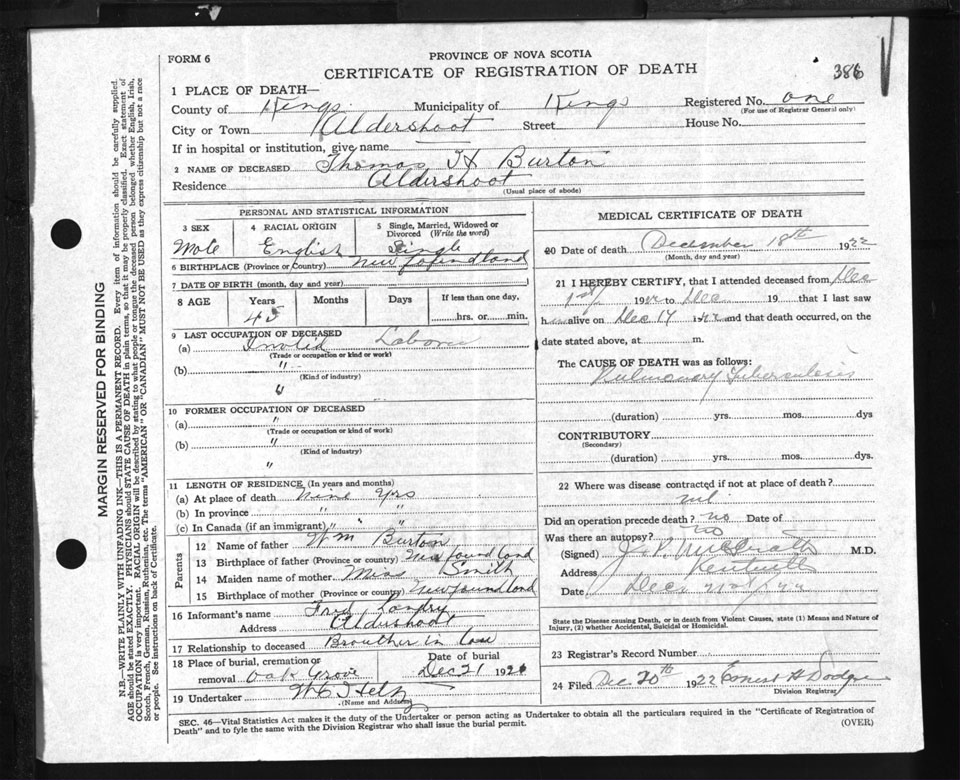 FORM 6
PROVINCE OF NOVA SCOTIA
CERTIFICATE OF REGISTRATION OF DEATH
386
1 PLACE OF DEATH—
County of Kings Municipality of Kings Registered No. one
(For use of Registrar General only)
City or Town Aldershoot Street House No.
If in hospital or institution, give name
2 NAME OF DECEASED Thomas H Burton
Residence Aldershoot
(Usual place of abode)
PERSONAL AND STATISTICAL INFORMATION
3 SEX 4 RACIAL ORIGIN 5 Single, Married, Widowed or Divorced (Write the word)
Male English Single
6 BIRTHPLACE (Province or Country) Newfoundland
7 DATE OF BIRTH (month, day and year)
8 AGE Years Months Days If less than one day,
45 hrs. or min.
9 LAST OCCUPATION OF DECEASED
(a) Invlid Laborer
(Trade or occupation or kind or work)
(b) "
(Kind of industry)
"
10 FORMER OCCUPATION OF DECEASED
(a) "
(Trade or occupation or kind of work)
(b) "
(Kind of industry)
"
11 LENGTH OF RESIDENCE (In years and months)
(a) At place of death Nine Yrs
(b) In province " "
(c) In Canada (if an immigrant) " " "
Parents
12 Name of father Wm Burton
13 Birthplace of father (Province or country) Newfoundland
14 Maiden name of mother Miss Smith
15 Birthplace of mother (Province or country) Newfoundland
16 Informant's name Fred Landry
Address Aldershoot
17 Relationship to deceased Brouther in law
18 Place of burial, cremation or removal Oak Grove Date of burial Dec 21 192
19 Undertaker
(Name and Address)
MEDICAL CERTIFICATE OF DEATH
20 Date of death December 18th 1922
(Month, day and year)
21 I HEREBY CERTIFY, that I attended deceased from Dec
1st 19 to Dec 19 that I last saw
h alive on Dec 17 and that death occurred, on the
date stated above, at m.
The CAUSE OF DEATH was as follows:
Pulmonary Tuberculosis
(duration) yrs. mos. dys
CONTRIBUTORY
(Secondary)
(duration) yrs. mos. dys.
22 Where was disease contracted if not at place of death?
nil
Did an operation precede death? no Date of
Was there an autopsy? no
(Signed) M.D.
Address Kentville
Date Dec 21st / 22
State the Disease causing Death, or in death from Violent Causes, state (1) Means and Nature of Injury, (2) whether Accidental, Suicidal or Homicidal.
23 Registrar's Record Number
24 Filed Dec 20th 1922 Ernest H Dodge
Division Registrar
SEC. 46—Vital Statistics Act makes it the duty of the Undertaker or person acting as Undertaker to obtain all the particulars required in the "Certificate of Registration of
Death" and to fyle the same with the Division Registrar who shall issue the burial permit. (OVER)
MARGIN RESERVED FOR BINDING
N.B.—WRITE PLAINLY WITH UNFADING INK—THIS IS A PERMANENT RECORD. Every item of information should be carefully supplied.
AGE should be stated EXACTLY. PHYSICIANS should STATE CAUSE OF DEATH in plain terms, so that it may be properly classified. Exact statement of
OCCUPATION is very important. RACIAL ORIGIN will be described by stating to what people or tongue the deceased person belonged whether English, Irish,
Scotch, French, German, Russian, Ruthenian, etc. The terms "AMERICAN" OR "CANADIAN" MUST NOT BE USED as they express citizenship but not a race
or people. See instructions on back of Certificate.